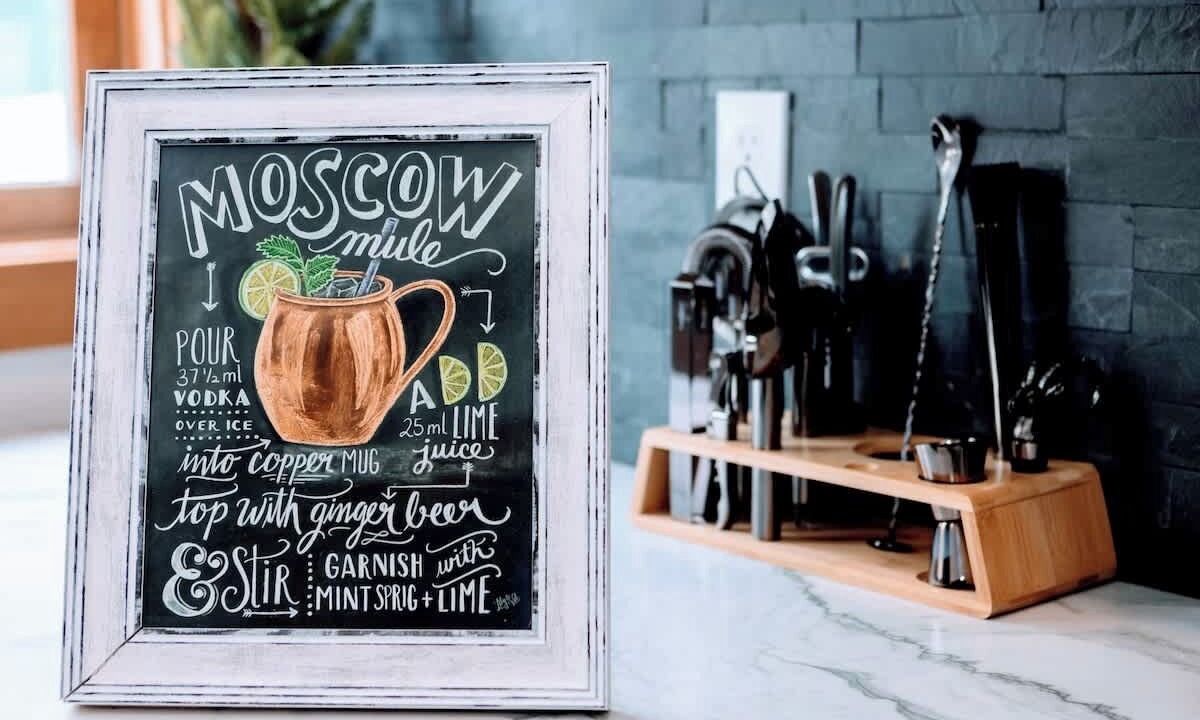 MOSCOW
mule
POUR
37 1/2 ml
VODKA
OVER ICE
into copper MUG
ADD
25ml LIME
juice
top with ginger beer
& STIR
GARNISH with
MINT SPRIG + LIME